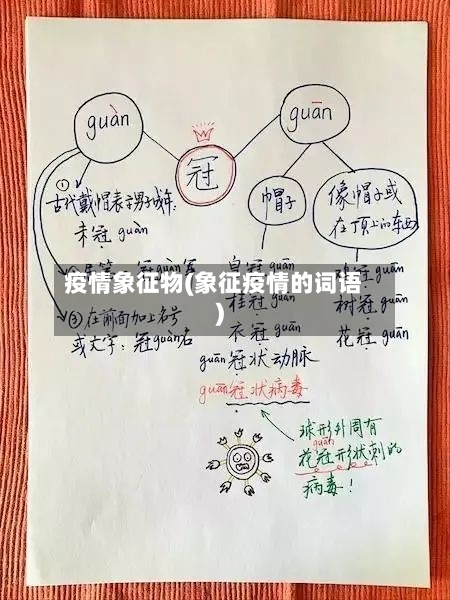 guàn
guān
冠
①
古代戴帽表示男子成年:
未冠 guàn
帽子
像帽子或
在顶上的东西
疫情象征物(象征疫情的词语
)
桂冠 guān
树冠 guān
③在前面加上名号
或文字:冠guàn名
衣冠 guān
花冠 guān
guān冠状动脉
guān冠状病毒
球形外周有
guān
花冠形状刺的
病毒!